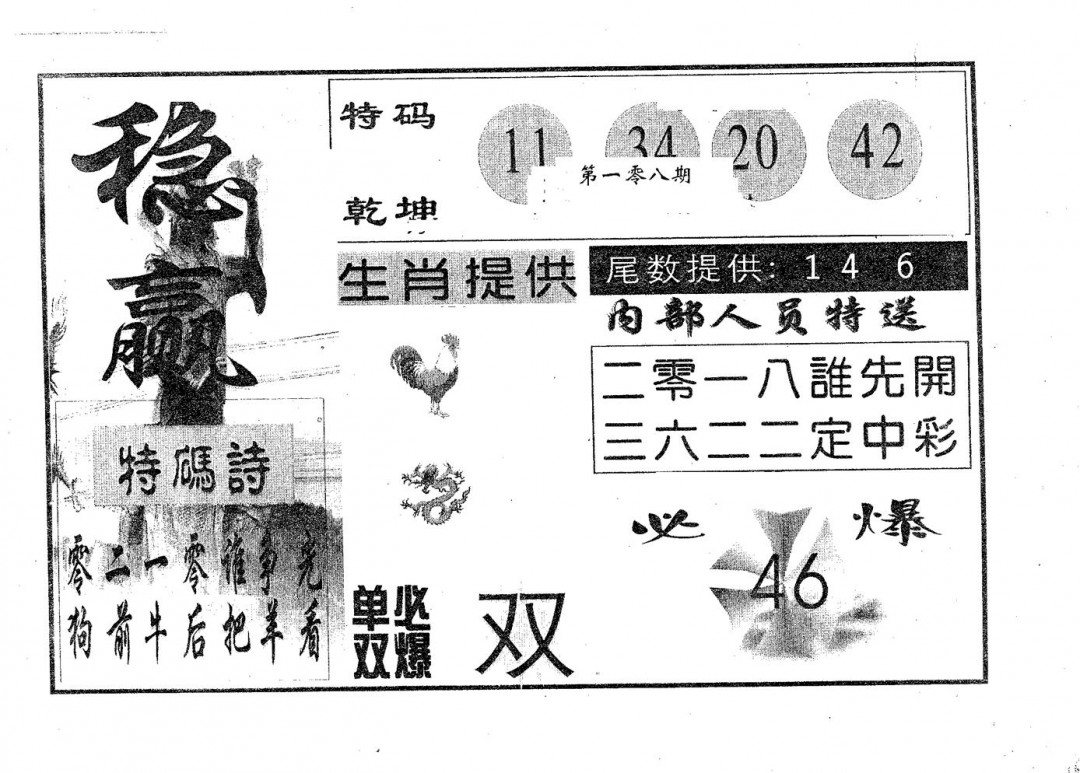 稳赢
特码
乾坤
11 34 20 42
第一零八期
生肖提供
尾数提供: 1 4 6
内部人员特送
二零一八誰先開
三六二二定中彩
特碼詩
零二一零谁争光
狗前牛后把羊看
必爆
46
单双必爆
双